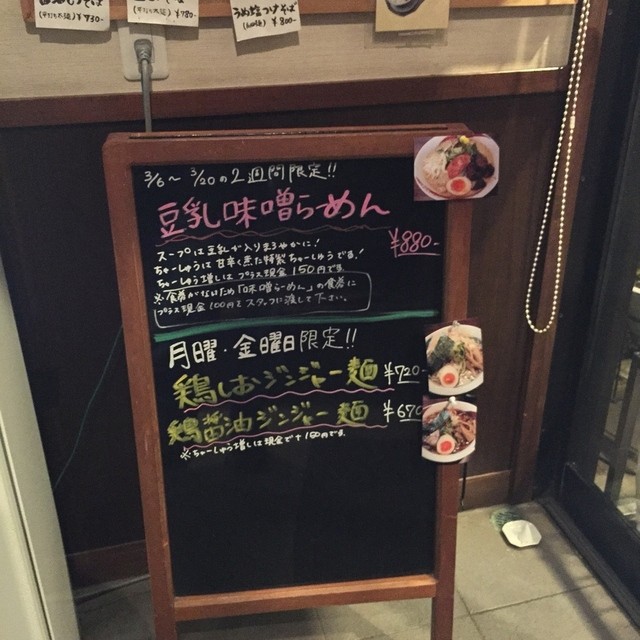 (平打ち太麺) ¥730-
(平打ち太麺) ¥780-
うめ塩つけそば
¥800-
3/6〜 3/20の2週間限定!!
豆乳味噌らーめん
¥880-
スープは豆乳が入りまろやかに!
ちゃーしゅうは甘辛く煮た特製ちゃーしゅうです!
ちゃーしゅう増しはプラス現金150円です。
※食券がないため「味噌らーめん」の食券に
プラス現金100円をスタッフに渡して下さい。
月曜・金曜日限定!!
鶏しおジンジャー麺 ¥720-
鶏醤油ジンジャー麺 ¥670
※ちゃーしゅう増しは現金で150円です。